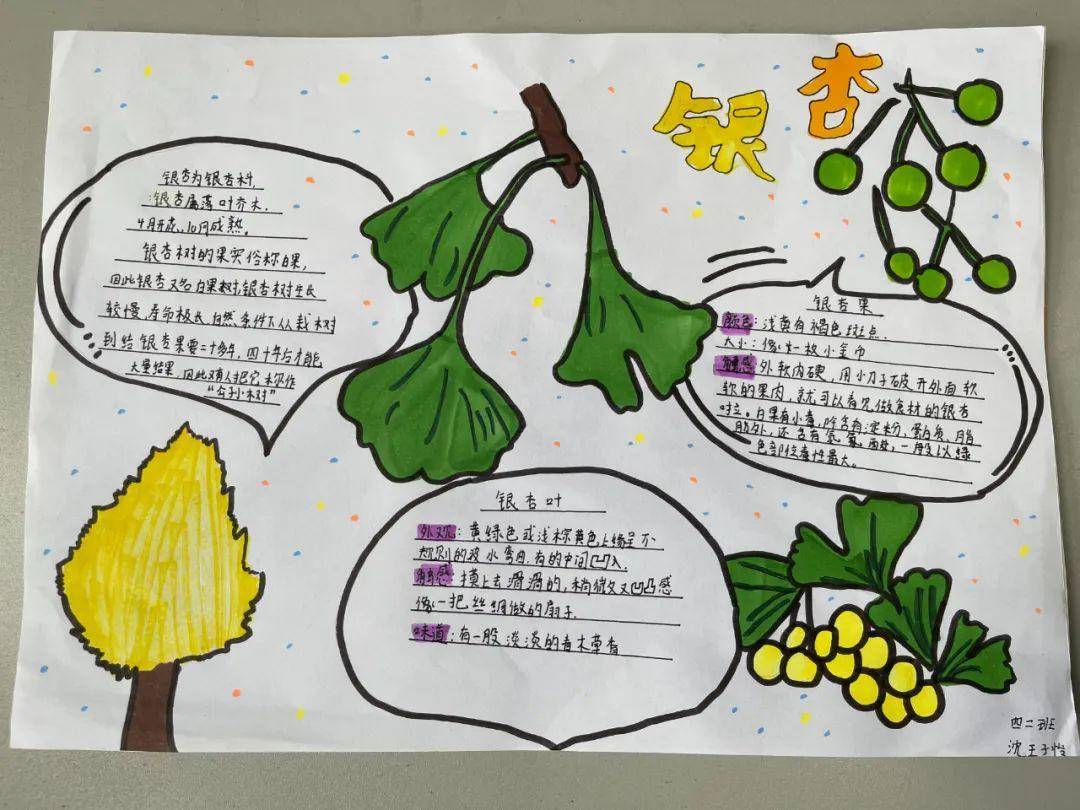 银杏
银杏为银杏科,
银杏属落叶乔木.
4月开花、10月成熟。
银杏树的果实俗称白果,
因此银杏又名白果树,银杏树生长
较慢,寿命极长,自然条件下从栽树
到结银杏果要二十多年,四十年后才能
大量结果,因此又有人把它称作
“公子小树”
银杏果
颜色:浅黄有褐色斑点.
大小:像一枚小金巾
触感 外软内硬,用小刀子破开外面软
软的果肉,就可以看见做食材的银杏
啦。白果有小毒,除含有淀粉、蛋白质、脂
肪外,还含有氢氰酸,一般以绿
色部位毒性最大。
银杏叶
外观:黄绿色或浅棕黄色上缘呈不
规则的波水弯曲.有的中间凹入.
触感:摸上去滑滑的,稍微又又凹凸感
像一把丝绸做的扇子.
味道:有一股淡淡的青木草香
四二班
沈王子怡